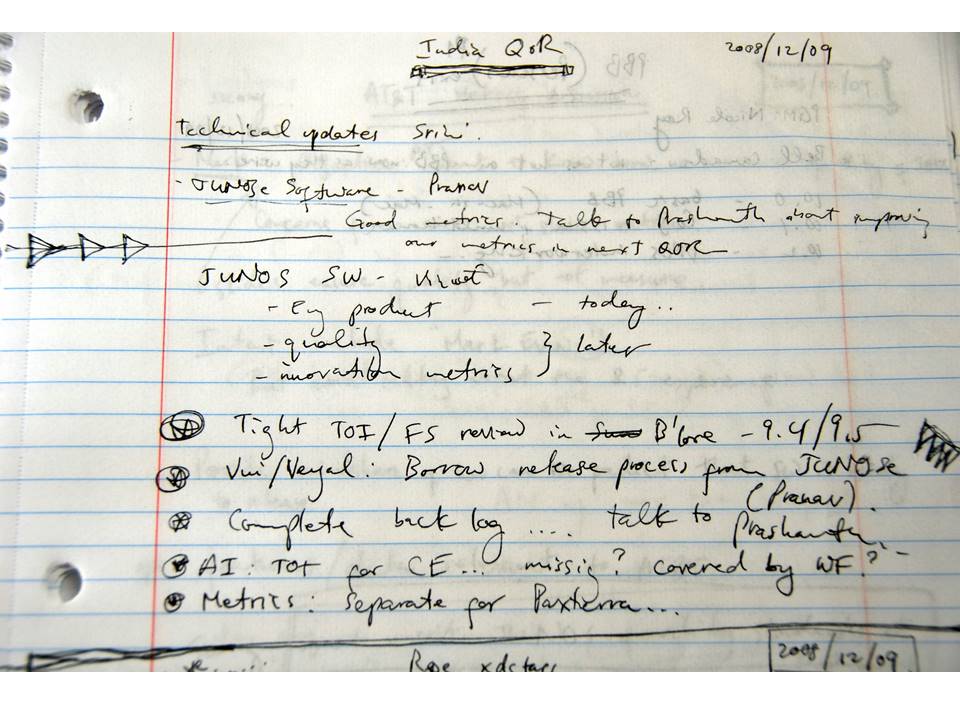 India QoR 2008/12/09
Technical updates Srini.
- JUNOSe Software - Pranav
Good metrics. Talk to Prashanth about improving
our metrics in next QOR
JUNOS SW -
- Eng product - today..
- quality
- innovation metrics } Later
Tight TOI/FS review in B'lore - 9.4/9.5
Vui/Veyal: Borrow release process from JUNOSe
(Pranav).
Complete back log .... talk to Prashanth.
AI: TOI for CE... missig? covered by WF?
Metrics: Separate for Paxterra...
2008/12/09